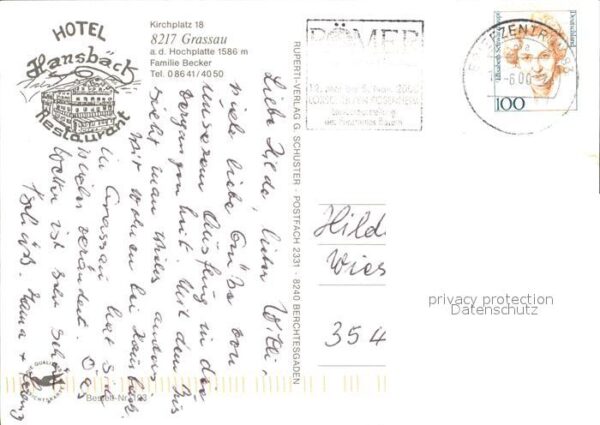 HOTEL
Hansbäck
Restaurant
Kirchplatz 18
8217 Grassau
a.d. Hochplatte 1586 m
Familie Becker
Tel. 0 86 41/40 50
RUPERTI-VERLAG G. SCHUSTER · POSTFACH 2331 · 8240 BERCHTESGADEN
RÖMER
BRIEFZENTRUM 83
-6.00
Deutschland
100
Liebe Hilde, lieber Willi,
viele liebe Grüße von
unserem Ausflug in die
Vergangenheit. Mit dem
sieht man vieles anders.
Wir wohnen bei Hansbäck.
In Grassau hat sich
vieles verändert. Das
Wetter ist sehr schön.
Hild
Wies
354
privacy protection
Datenschutz
Bestell-Nr.